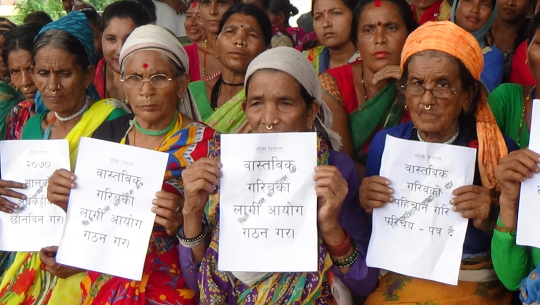 २०३०
छानविन गर।
वास्तविक
गरिबको
लागी आयोग
गठन गर।
वास्तविक
गरिबको
लागी आयोग
गठन गर।
वास्तविक
गरिबको
पहिचान गरि
परिचय - पत्र दे